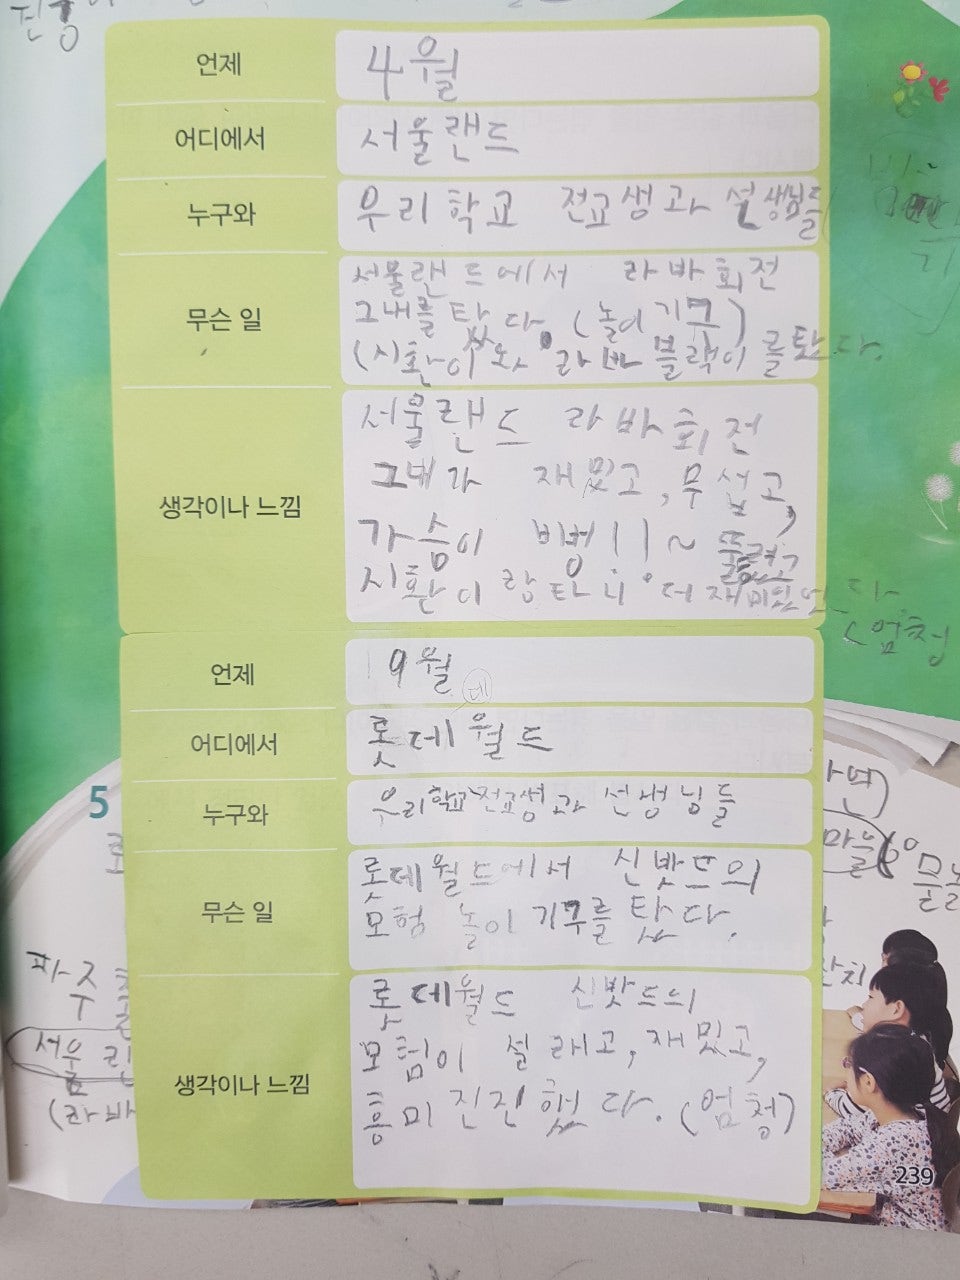 언제
4월
어디에서
서울랜드
누구와
우리 학교 전교생과 설생님들
무슨 일
서울랜드에서 라바회전
그내를 탔다. (놀이기구)
(시환이와 라바블랙이를 탔다.
생각이나 느낌
서울랜드 라바회전
그네가 재밌고, 무섭고,
가슴이 뻥!!~ 뚤렸고
시환이랑 타니 더 재미있었다
(엄청
언제
9월
데
어디에서
롯데월드
누구와
우리학교 전교생과 선생님들
무슨 일
롯데월드에서 신밧드의
모험 놀이기구를 탔다.
생각이나 느낌
롯데월드 신밧드의
모험이 설래고, 재밌고,
흥미진진했다. (엄청)
5
파주
서울
(라바
239